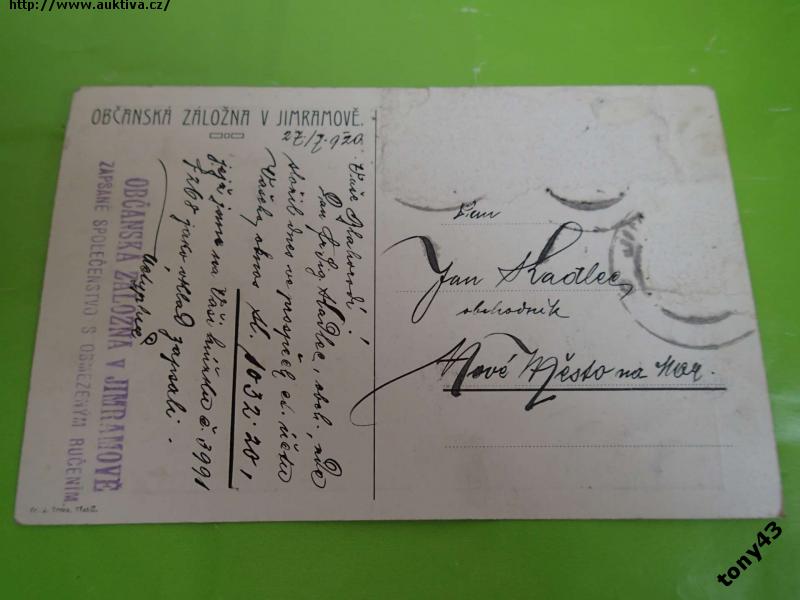 http://www.auktiva.cz/
OBČANSKÁ ZÁLOŽNA V JIMRAMOVĚ.
27/7.920.
Vaše Blahorodí!
Pan Ludvig Kadlec, obch.,
složil dnes ve prospěch ct. účtu
Vašeho, obnos Kč. 1032.20,
jejž jsme na Vaši knížku č. 3991
jako vklad zapsali.
OBČANSKÁ ZÁLOŽNA V JIMRAMOVĚ
ZAPSANÉ SPOLEČENSTVO S OBMEZENÝM RUČENÍM.
Pan
Jan Kadlec,
obchodník
Nové Město na Mor.
tony43